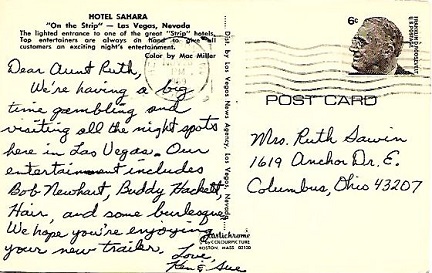 HOTEL SAHARA
"On the Strip" — Las Vegas, Nevada
The lighted entrance to one of the great "Strip" hotels.
Top entertainers are always on hand to give all
customers an exciting night's entertainment.
Color by Mac Miller
Dear Aunt Ruth,
We're having a big
time gambling and
visiting all the night spots
here in Las Vegas. Our
entertainment includes
Bob Newhart, Buddy Hackett,
Hair, and some burlesque.
We hope you're enjoying
your new trailer.
Love,
Ken & Sue
Dist. by Las Vegas News Agency, Las Vegas, Nevada
Plastichrome
by COLOURPICTURE
BOSTON, MASS. 02130
PM
6¢
FRANKLIN D. ROOSEVELT
U.S. POSTAGE
POST CARD
Mrs. Ruth Sawin
1619 Anchor Dr. E.
Columbus, Ohio 43207